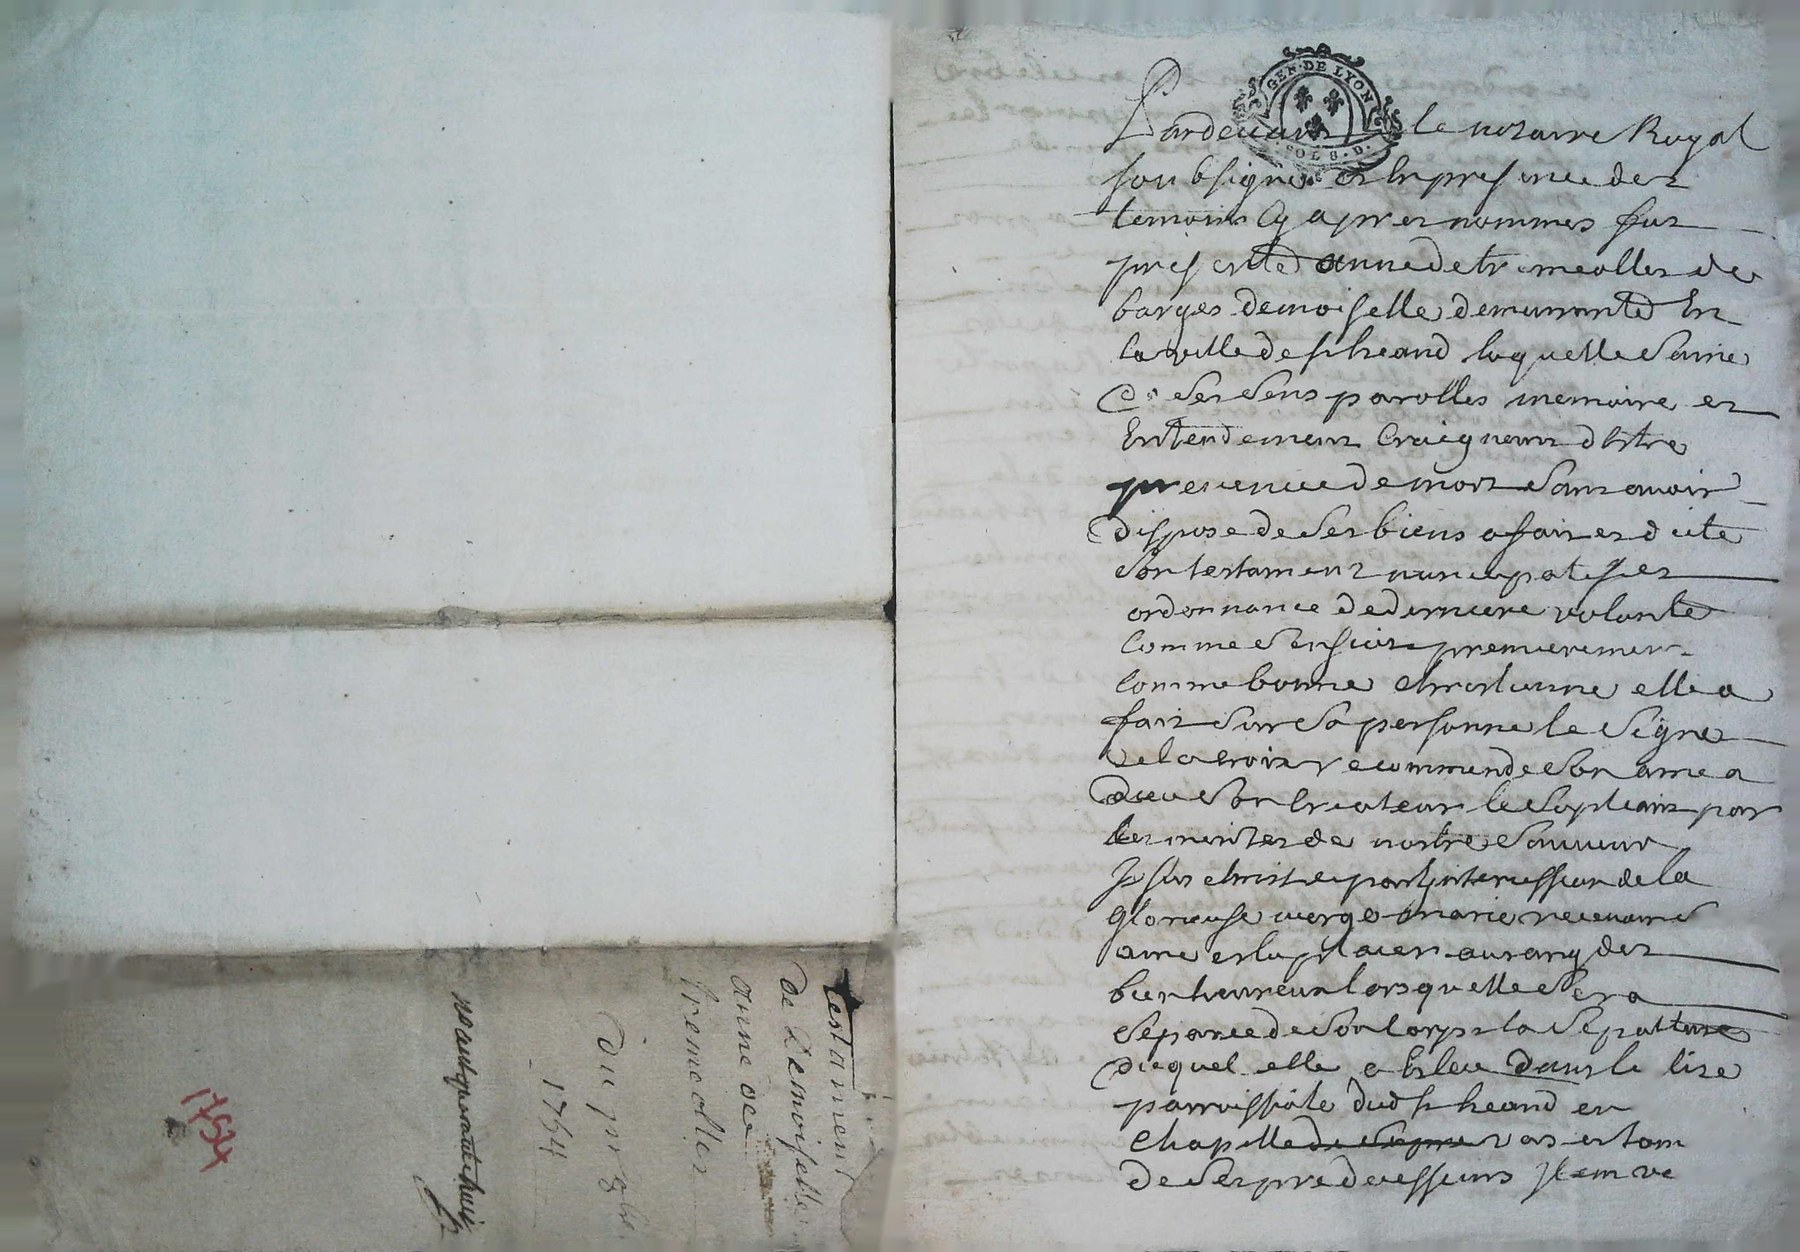 GEN·DE·LYON
SOLS·D·
Pardevant le notaire Royal
soubsigne et en presence des
temoins cy apres nommes fut
presente anne de tremeolles de
barges demoiselle demeurante en
la ville de st heand laquelle saine
de ses sens parolles memoire et
entendement craignant destre
prevenue de mort sans avoir
dispose de ses biens a fait et dicte
son testament nuncupatif et
ordonnance de derniere volonte
comme sensuit premierement
comme bonne chrestienne elle a
fait sur sa personne le signe
de la croix recommande son ame a
dieu son createur le supliant par
les merites de nostre sauveur
Jesus christ et par lintercession de la
glorieuse vierge marie recevoir sd
ame et la placer au rang des
bienheureux lorsquelle sera
separee de son corps la sepulture
duquel elle a esleu dans le lise
parroissiale dud st heand en
chapelle vas et tom
de ses predecesseurs Item ve
testament
de demoiselle
anne de
tremeolles
du pr
1754
no cent quarante huit
1754